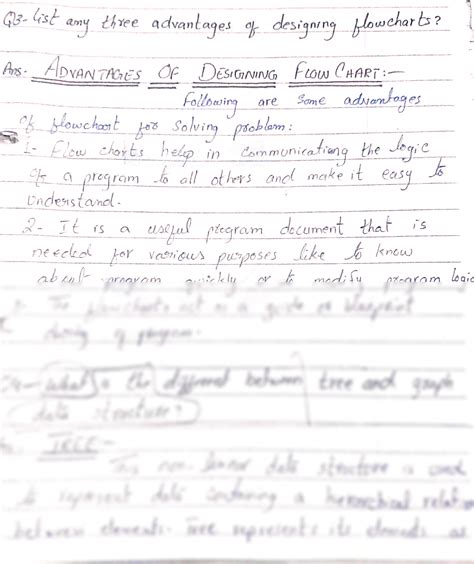 Q3- List any three advantages of designing flowcharts?
Ans. ADVANTAGES OF DESIGNING FLOW CHART:-
Following are some advantages
of flowchart for solving problem:
1- Flow charts help in communicationg the logic
of a program to all others and make it easy to
understand.
2- It is a useful program document that is
needed for various purposes like to know
about program quickly or to modify program logic
3- The flowcharts act as a guide or blueprint
during of program.
Q4- What is the different between tree and graph
data structure?
TREE-
This non-linear data structure is used
to represent data containing a hierarchical relation
between elements. Tree represents its elements as